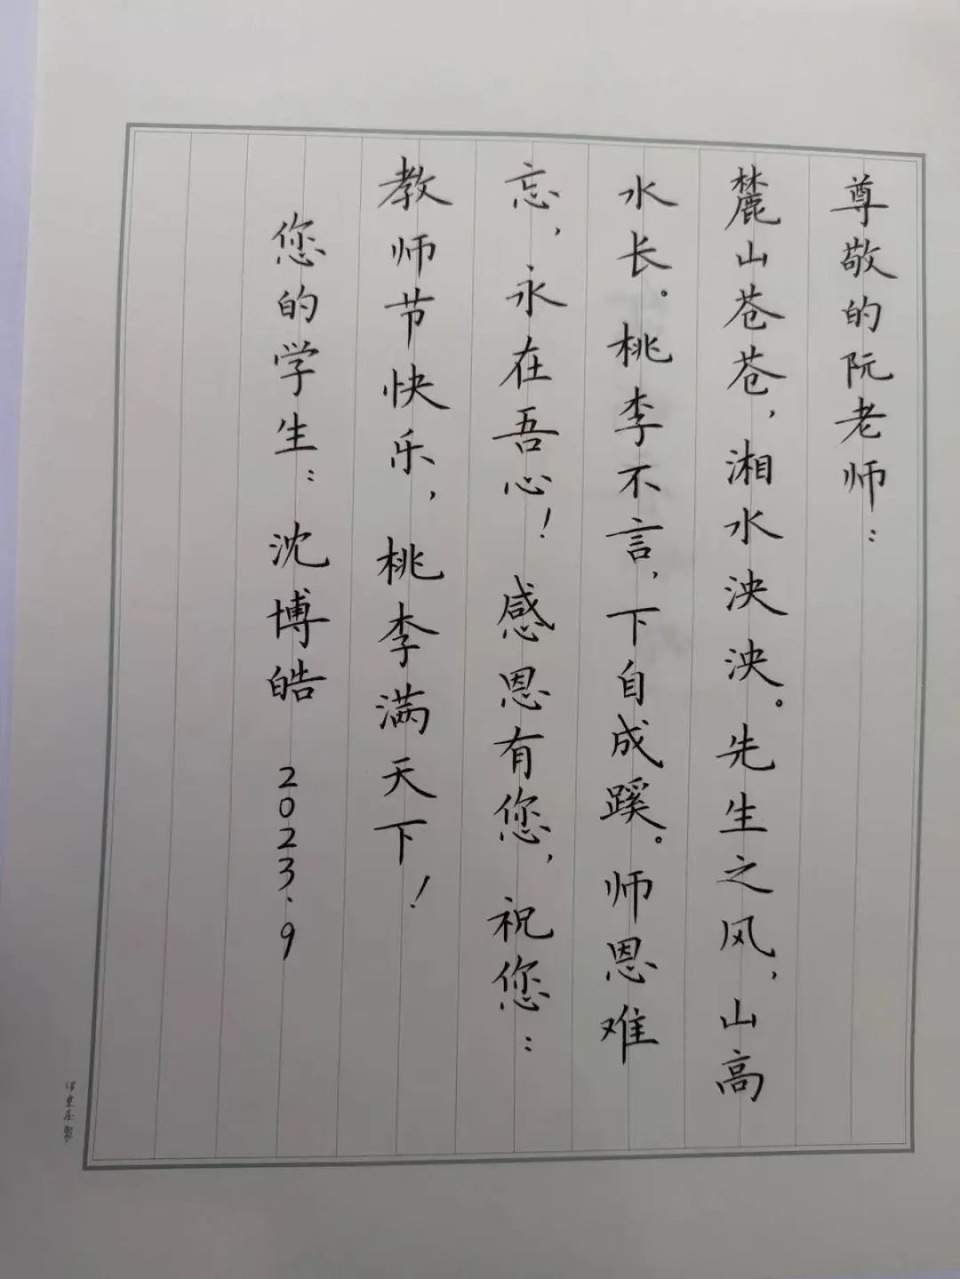 尊敬的阮老师：
麓山苍苍，湘水泱泱。先生之风，山高
水长。桃李不言，下自成蹊。师恩难
忘，永在吾心！感恩有您，祝您：
教师节快乐，桃李满天下！
您的学生：沈博皓 2023.9